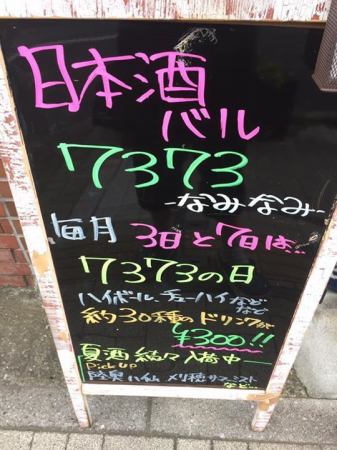 日本酒
バル
7373
-なみなみ-
毎月 3日と7日は…
7373の日
ハイボール、チューハイなど
など
約30種のドリンクが
¥300!!
夏酒 続々入荷中
Pick up
陸奥八仙 〆張鶴 サマーミスト
など…